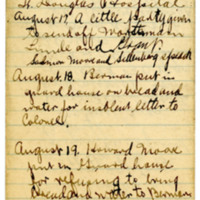 St. Douglas Hospital
August 17 A little party given
to send off
and
Berman Moore and
August 18. Berman put in
guard house on bread and
water for insolent letter to
Colonel.
August 19. Howard Moore
put in guard house
for refusing to bring
bread and water to Berman